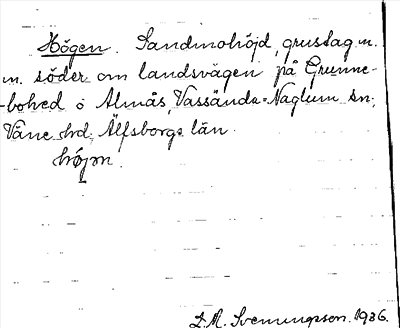 Högen. Sandmohöjd, grustag m.
m. söder om landsvägen på Grunne-
bohed ö Almås, Vassända-Naglum sn.,
Väne hd; Älfsborgs län.
höjən.
L.M. Svenungsson. 1936.